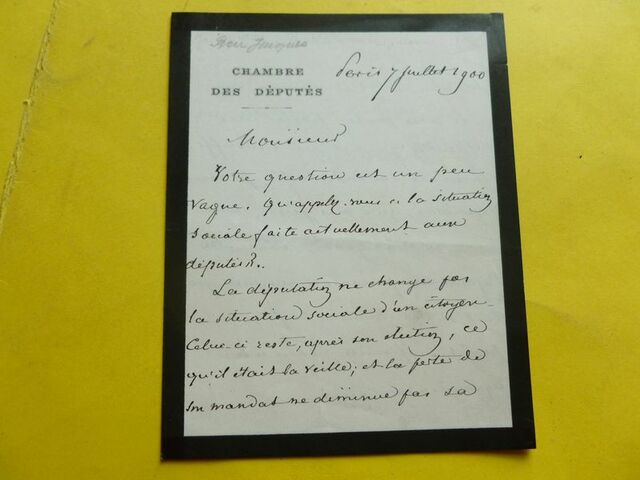 Jacques
CHAMBRE
DES DÉPUTÉS
Paris 7 Juillet 1900
Monsieur
Votre question est un peu
vague. Qu'appelez-vous « la situation
sociale faite actuellement aux
députés ? »
La députation ne change pas
la situation sociale d'un citoyen.
Celui-ci reste, après son élection, ce
qu'il était la veille ; et la perte de
son mandat ne diminue pas sa